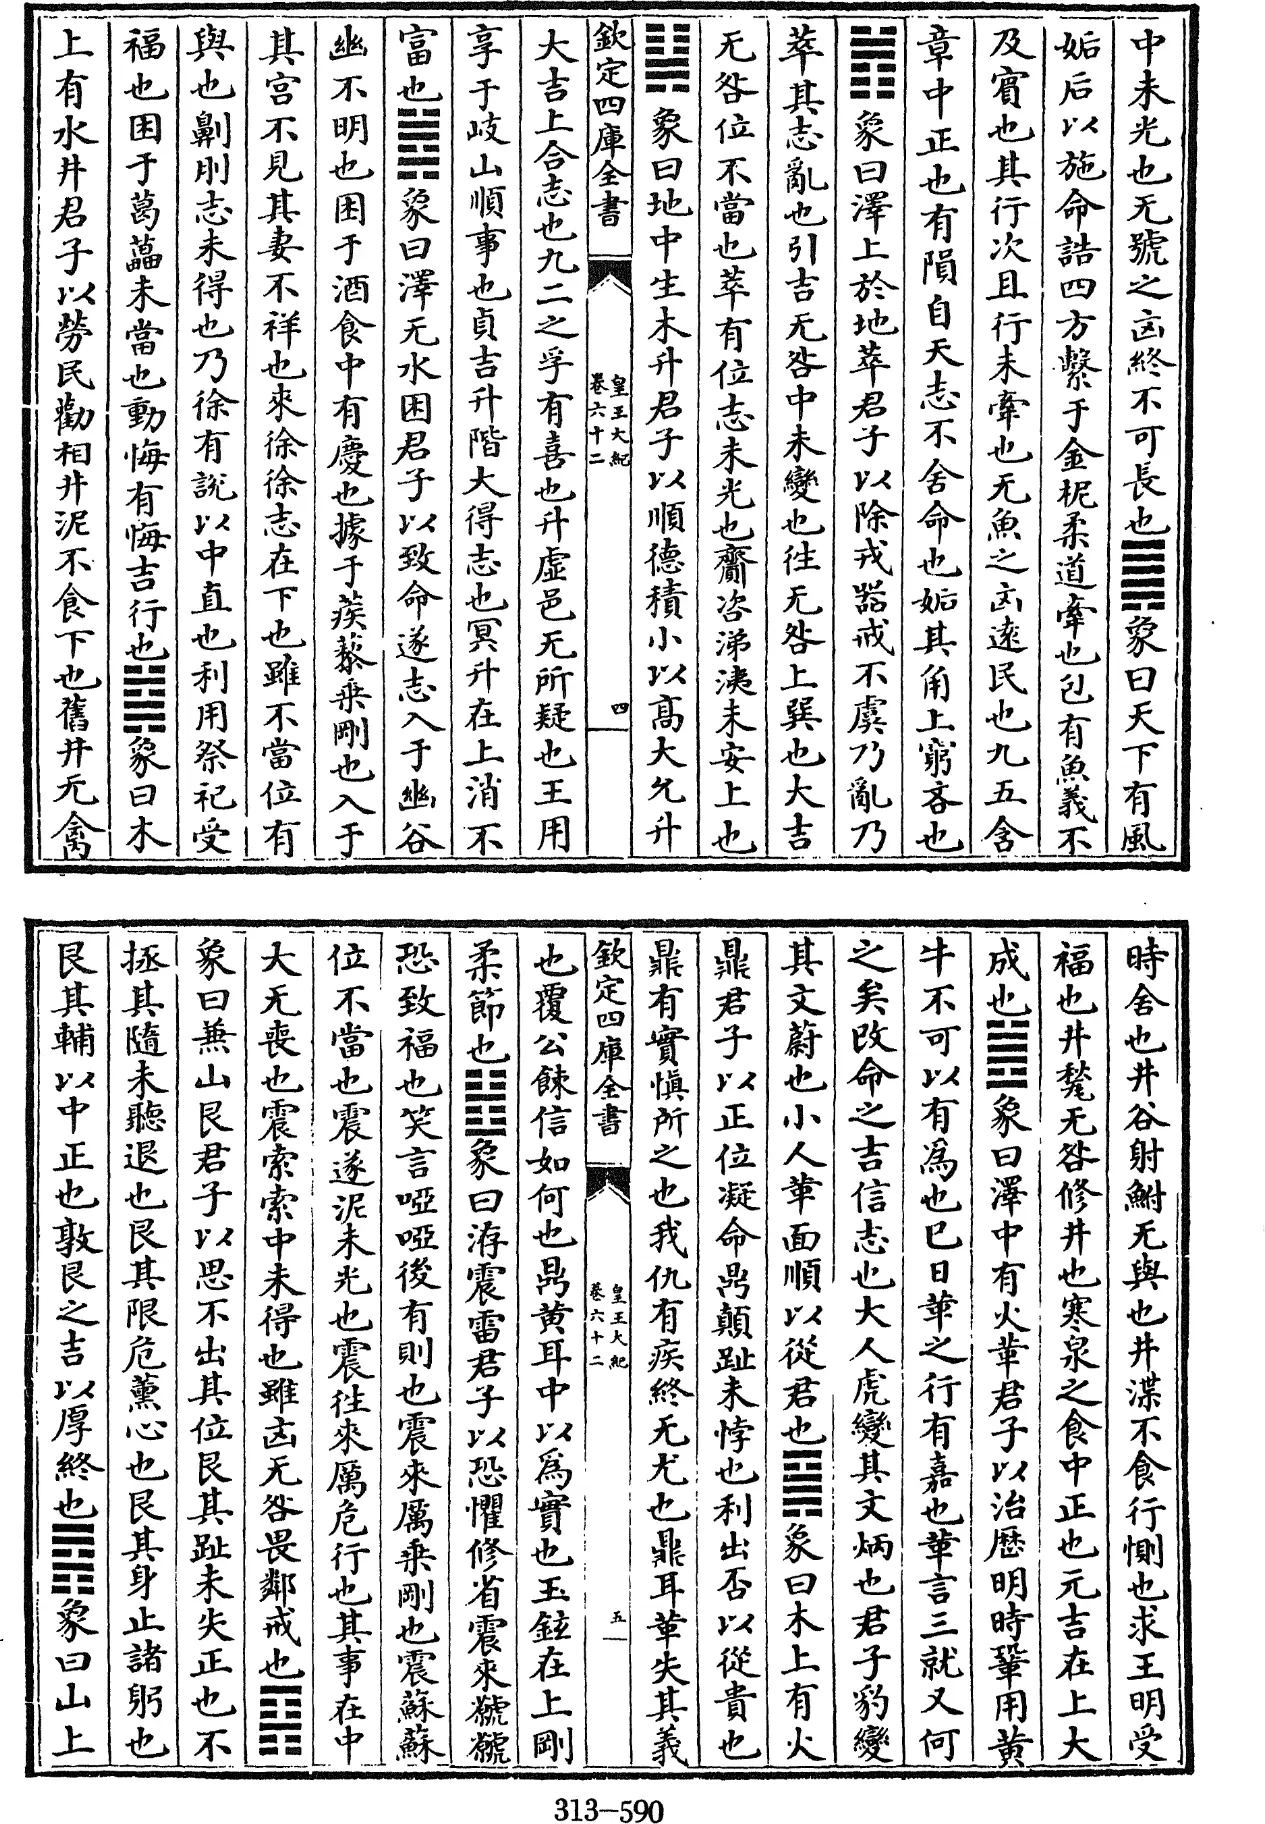 中未光也无號之凶終不可長也䷫象曰天下有風
姤后以施命誥四方繫于金柅柔道牽也包有魚義不
及賓也其行次且行未牽也无魚之凶遠民也九五含
章中正也有隕自天志不舍命也姤其角上窮吝也
䷬象曰澤上於地萃君子以除戎器戒不虞乃亂乃
萃其志亂也引吉无咎中未變也往无咎上巽也大吉
无咎位不當也萃有位志未光也齎咨涕洟未安上也
䷭象曰地中生木升君子以順德積小以高大允升
欽定四庫全書
皇王大紀
卷六十二
四
大吉上合志也九二之孚有喜也升虛邑无所疑也王用
享于岐山順事也貞吉升階大得志也冥升在上消不
富也䷮象曰澤无水困君子以致命遂志入于幽谷
幽不明也困于酒食中有慶也據于蒺藜乘剛也入于
其宮不見其妻不祥也來徐徐志在下也雖不當位有
與也劓刖志未得也乃徐有說以中直也利用祭祀受
福也困于葛藟未當也動悔有悔吉行也䷯象曰木
上有水井君子以勞民勸相井泥不食下也舊井无禽
時舍也井谷射鮒无與也井渫不食行惻也求王明受
福也井甃无咎修井也寒泉之食中正也元吉在上大
成也䷰象曰澤中有火革君子以治歷明時鞏用黃
牛不可以有為也巳日革之行有嘉也革言三就又何
之矣改命之吉信志也大人虎變其文炳也君子豹變
其文蔚也小人革面順以從君也䷱象曰木上有火
鼎君子以正位凝命鼎顛趾未悖也利出否以從貴也
鼎有實慎所之也我仇有疾終无尤也鼎耳革失其義
欽定四庫全書
皇王大紀
卷六十二
五
也覆公餗信如何也鼎黃耳中以為實也玉鉉在上剛
柔節也䷲象曰洊震雷君子以恐懼修省震來虩虩
恐致福也笑言啞啞後有則也震來厲乘剛也震蘇蘇
位不當也震遂泥未光也震往來厲危行也其事在中
大无喪也震索索中未得也雖凶无咎畏鄰戒也䷳
象曰兼山艮君子以思不出其位艮其趾未失正也不
拯其隨未聽退也艮其限危薰心也艮其身止諸躬也
艮其輔以中正也敦艮之吉以厚終也䷴象曰山上
313-590